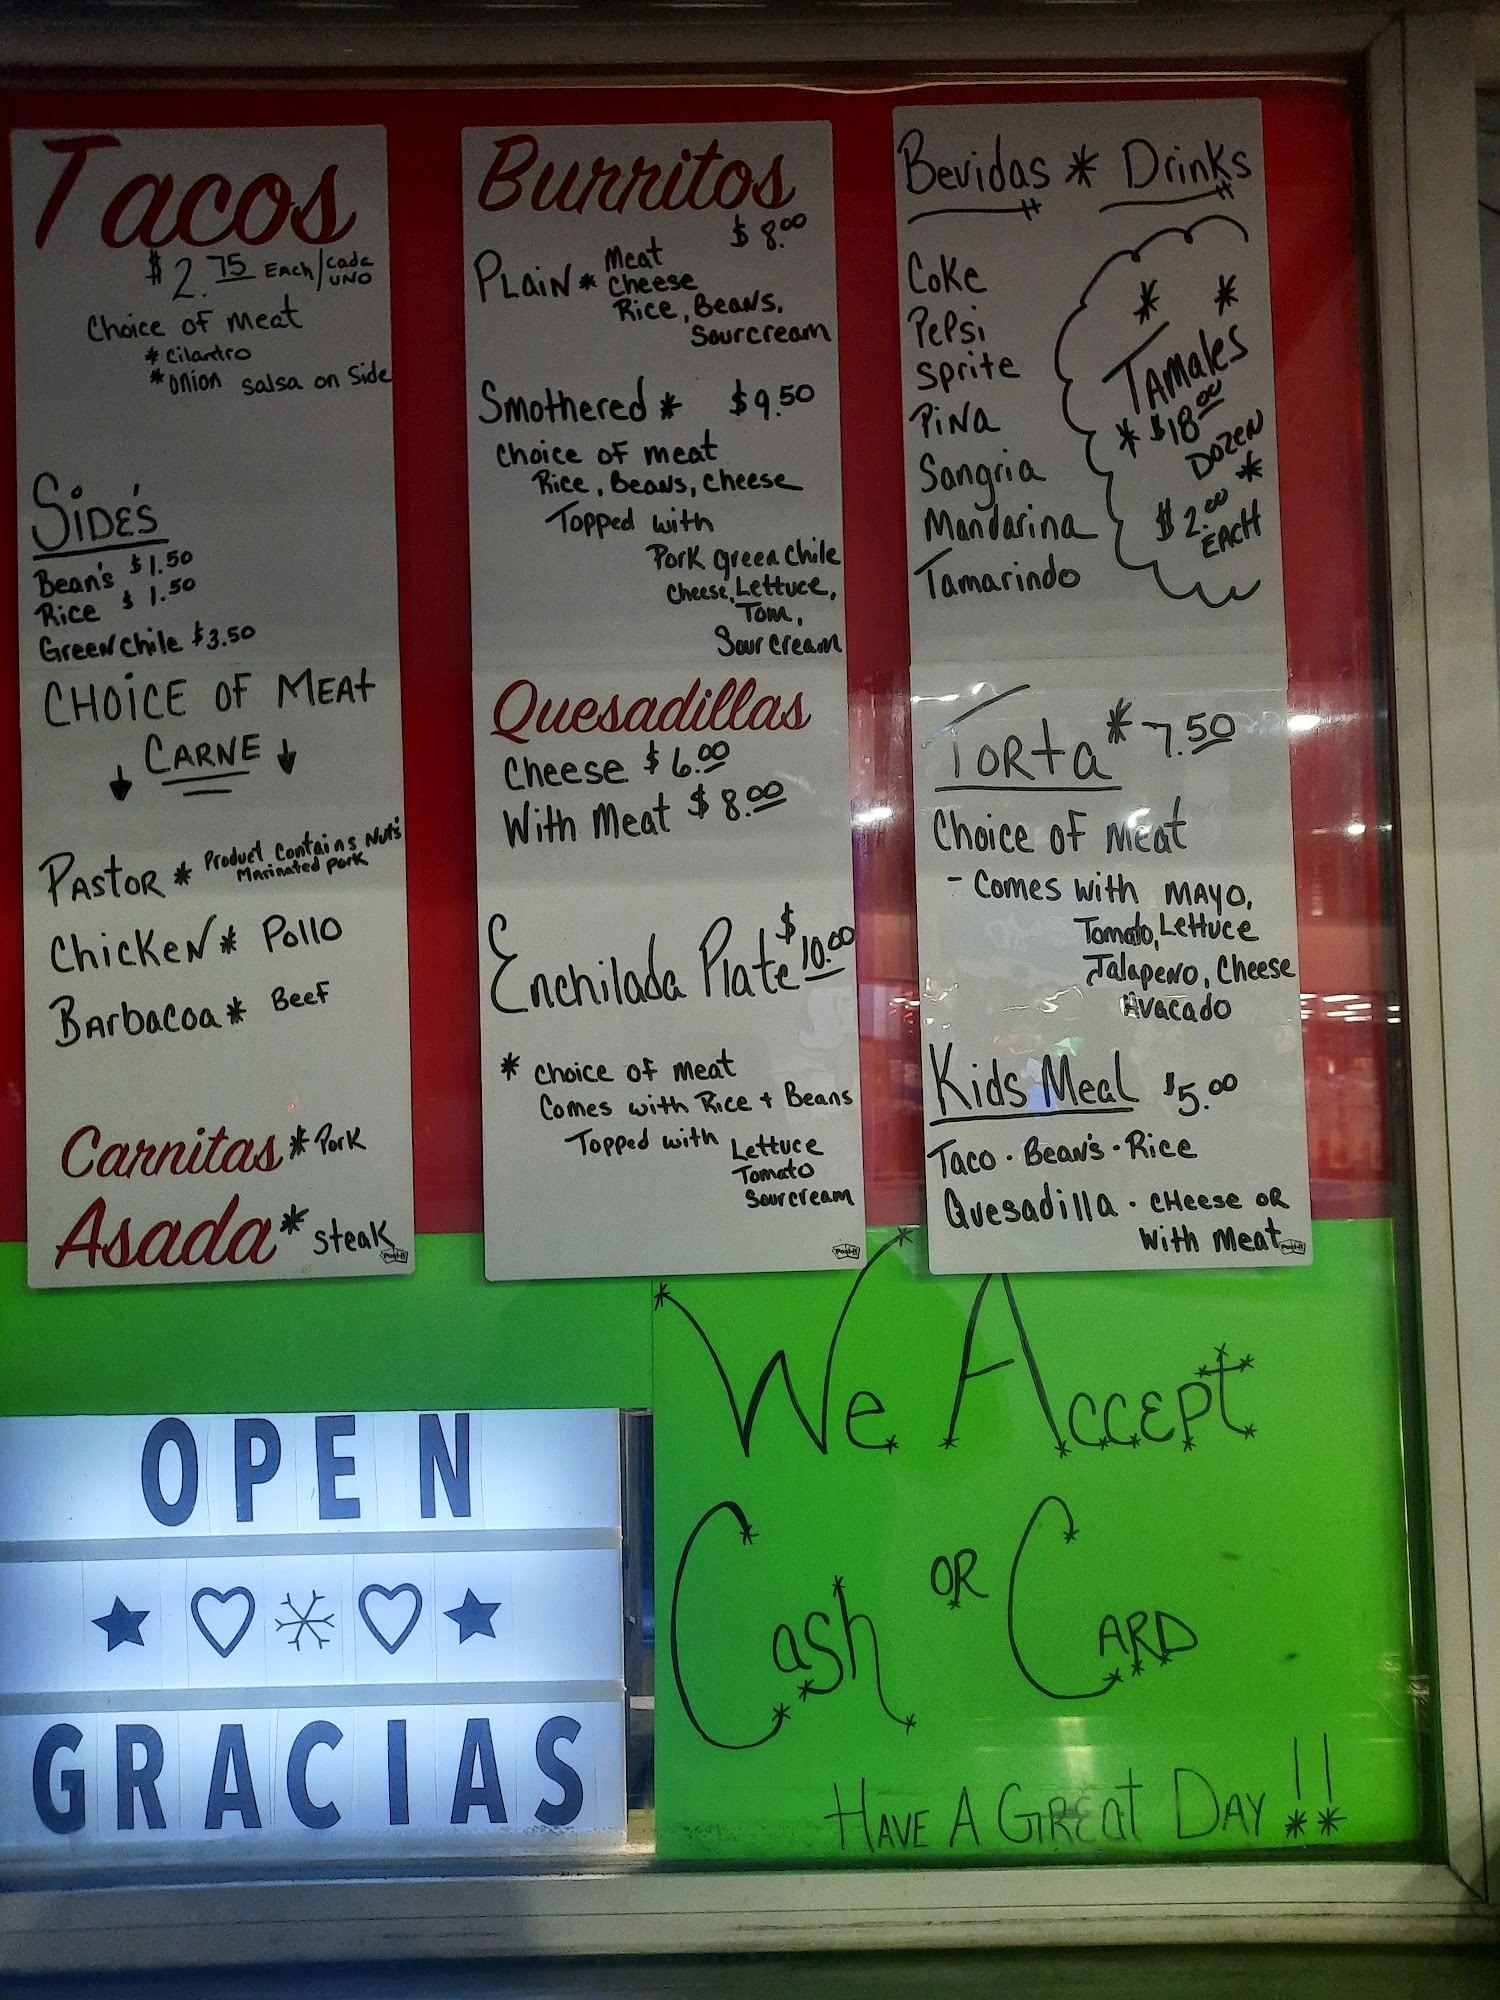 Tacos
$2.75 Each/cada uno
Choice of meat
* cilantro
* onion salsa on side
Side's
Bean's $1.50
Rice $1.50
Green chile $3.50
CHOiCE OF MEAt
↓ CARNE ↓
Pastor * Product contains Nut's
Marinated pork
Chicken * Pollo
Barbacoa * Beef
Carnitas * Pork
Asada * steak
Post-it
Burritos
$8.00
Plain * Meat
Cheese
Rice, Beans,
Sourcream
Smothered * $9.50
Choice of meat
Rice, Beans, cheese
Topped with
Pork green chile
Cheese, Lettuce,
Tom,
Sour cream
Quesadillas
Cheese $6.00
With Meat $8.00
Enchilada Plate $10.00
* choice of meat
Comes with Rice + Beans
Topped with Lettuce
Tomato
Sourcream
Post-it
Bevidas * Drinks
Coke
Pepsi
Sprite
Pina
Sangria
Mandarina
Tamarindo
* *
Tamales
* $18.00
Dozen
*
$2.00
Each
Torta * 7.50
Choice of meat
- Comes with mayo,
Tomato, Lettuce
Jalapeno, Cheese
Avacado
Kids Meal $5.00
Taco · Bean's · Rice
Quesadilla · cheese or
with meat
Post-it
We Accept
Cash or Card
Have A Great Day!!
OPEN
★ ♡ ❄ ♡ ★
GRACIAS